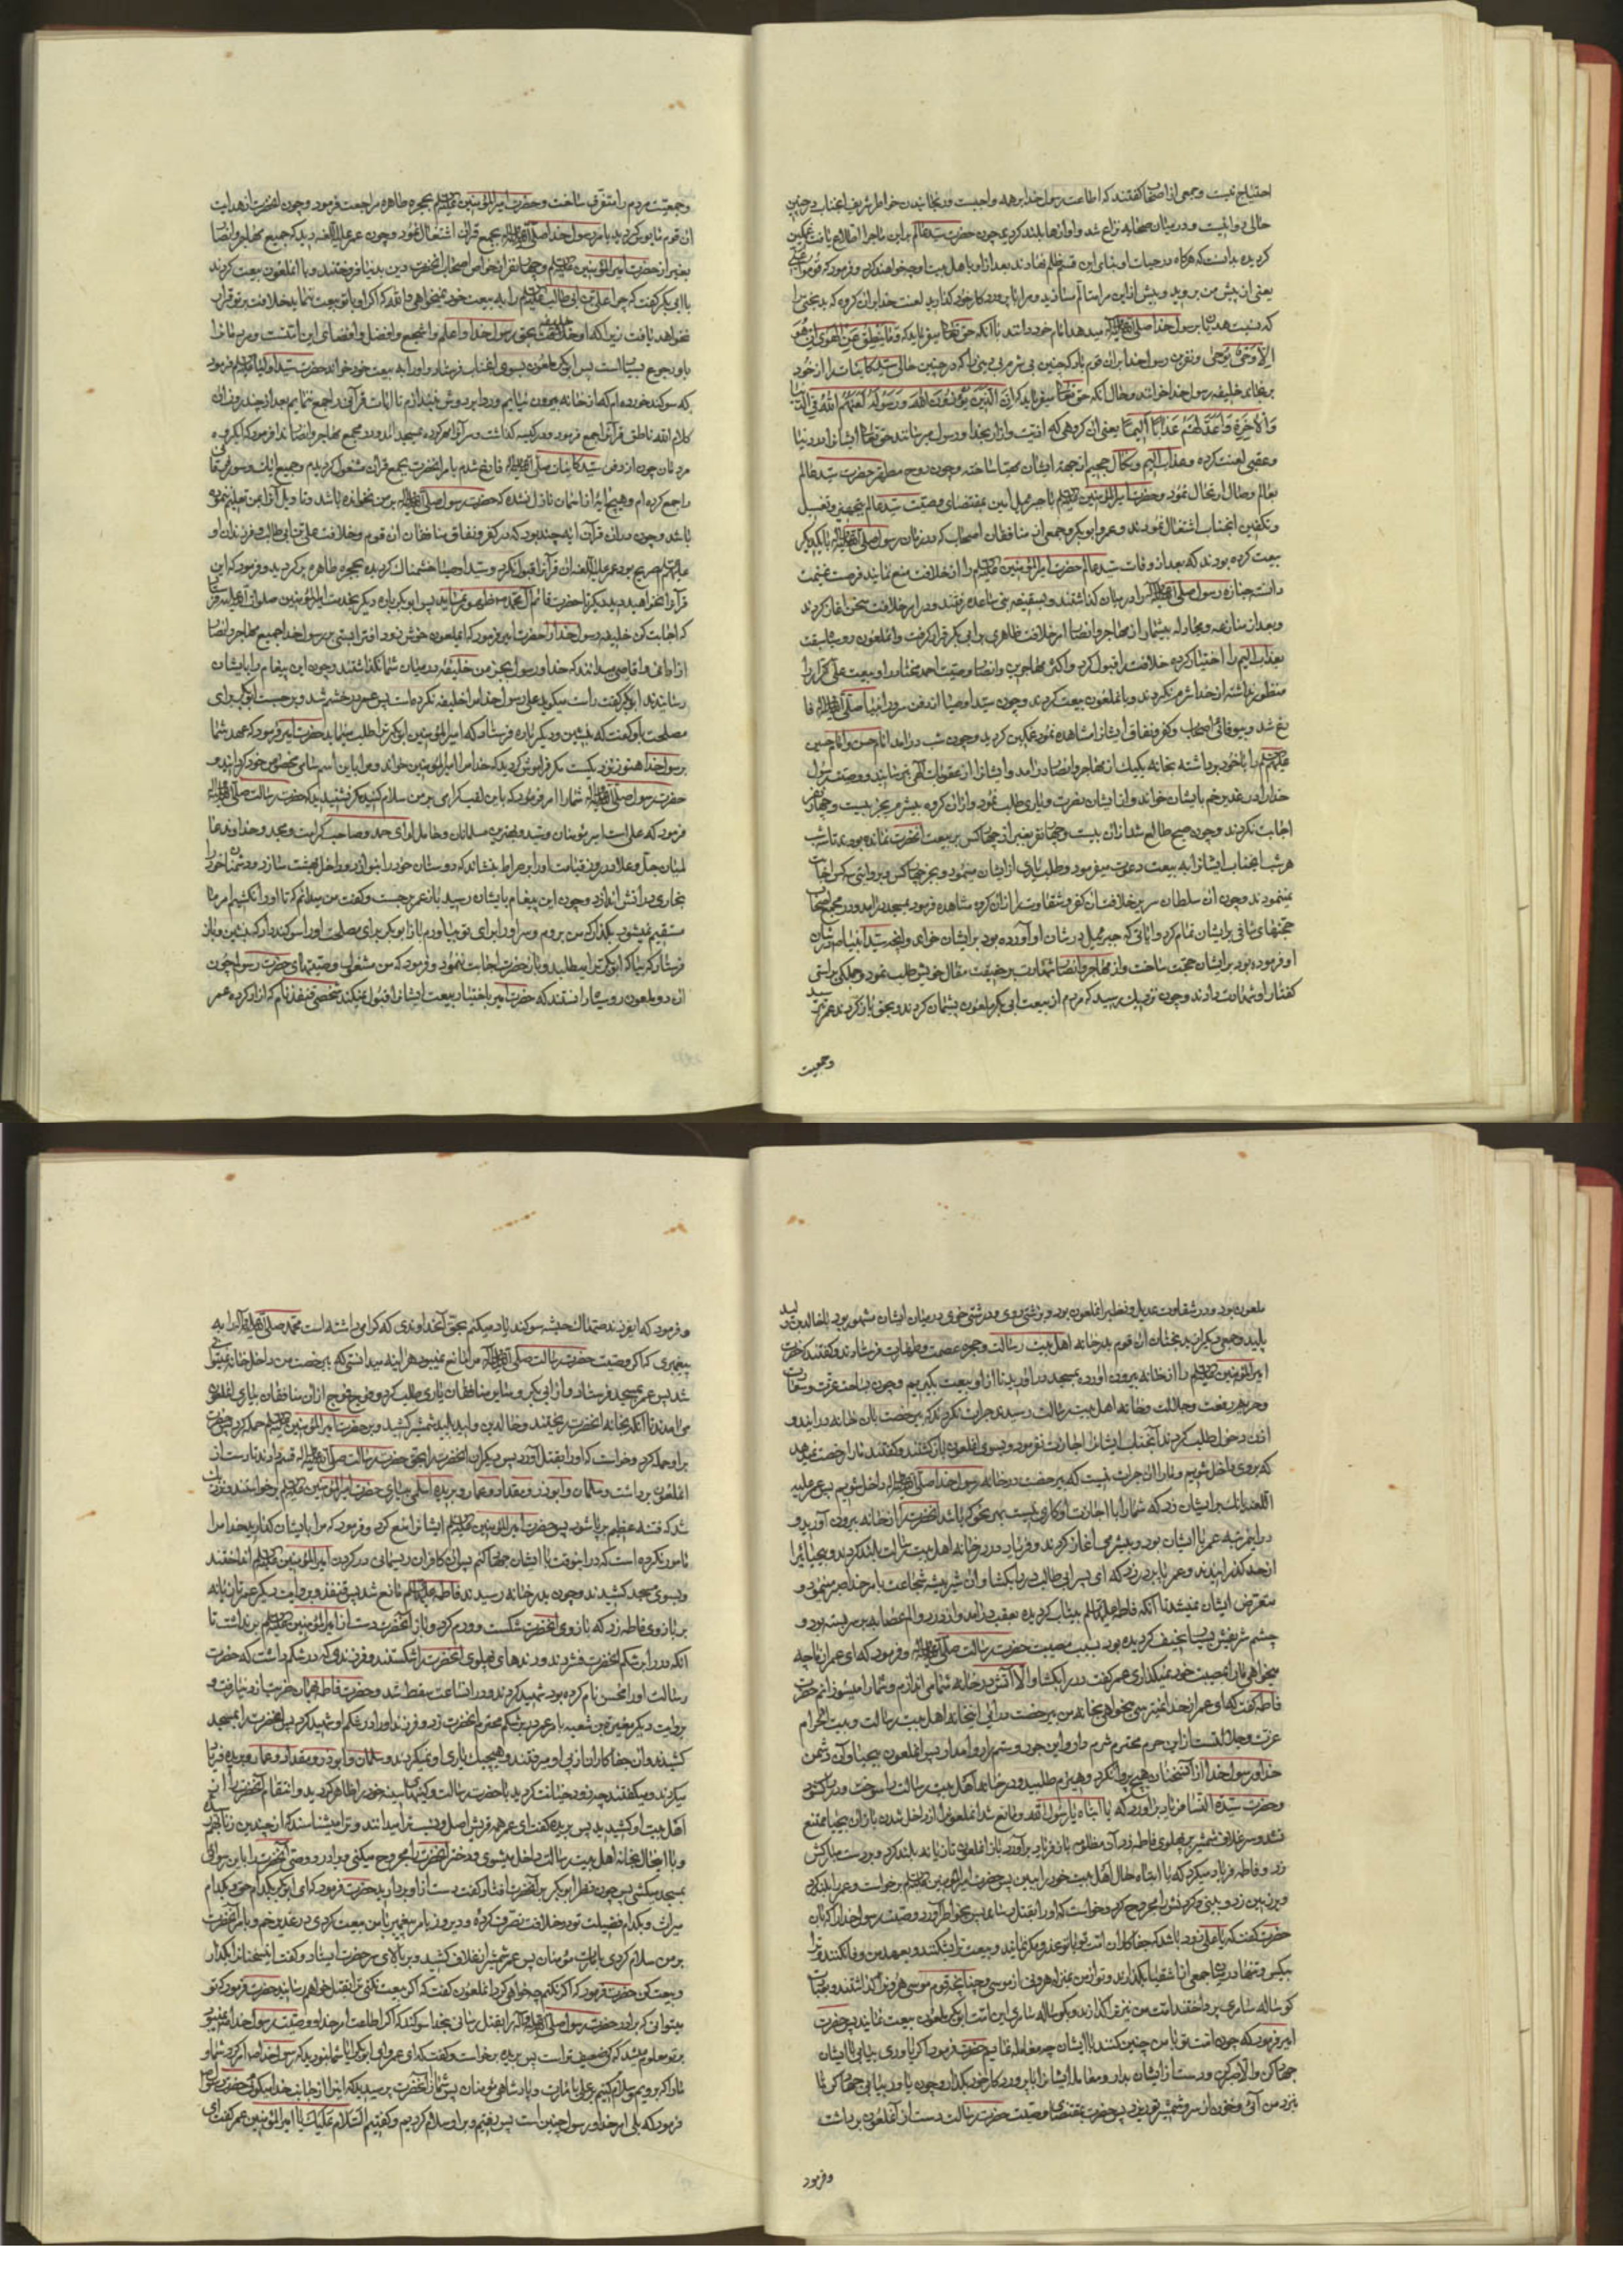 احتیاج نیست و جمعی از اصحاب گفتند که اطاعت رسول خدا بر همه واجبست و رنجانیدن خاطر شریف آنجناب در چنین
حالی روا نیست و در میان صحابه نزاع شد و آوازها بلند کردید چون حضرت سید عالم بر این ماجرا اطلاع یافت غمگین
کردیده دانست که هرکاه در حیات او بنای این قسم ظلم نهادند بعد از او با اهل بیت او چه خواهند کرد و فرمود که قوموا عنی
یعنی از پیش من بروید و بیش از این مرا متالم مسازید و مرا با پروردکار خود کذارید لعنت خدا بر آن کروه که بدبختی را
که نسبت هذیان با رسول خدا صلی الله علیه و آله میدهد امام خود دانند با آنکه حق تعالی میفرماید که وما ینطق عن الهوی ان هو
الا وحی یوحی و نفرین رسول خدا بر آن قوم باد که چنین بی شرمی بی دینی را که در چنین حالی سید کاینات را از خود
برنجاند خلیفه رسول خدا خوانند و حال آنکه حق تعالی میفرماید که ان الذین یؤذون الله ورسوله لعنهم الله فی الدنیا
والآخرة واعد لهم عذابا الیما یعنی آن کروهی که اذیت و آزار بخدا و رسول میرسانند حق تعالی ایشانرا در دنیا
و عقبی لعنت کرده و عذاب الیم و نکال جحیم از جهت ایشان مهیا ساخته و چون روح مطهر حضرت سید عالم
بعالم وصال ارتحال نمود و حضرت امیر المؤمنین علیه السلام با جبرئیل امین بمقتضای وصیت سید عالم بتجهیز و تغسیل
و تکفین آنجناب اشتغال نمودند و عمر و ابوبکر و جمعی از منافقان اصحاب که در زمان رسول صلی الله علیه و آله با یکدیکر
بیعت کرده بودند که بعد از وفات سید عالم حضرت امیر المؤمنین علیه السلام را از خلافت منع نمایند فرصت غنیمت
دانسته جنازه رسول صلی الله علیه و آله را در میان کذاشتند و بسقیفه بنی ساعده رفتند و در امر خلافت سخن آغاز کردند
و بعد از منازعه و مجادله بیشمار از مهاجر و انصار امر خلافت ظاهری بر ابی بکر قرار کرفت و آنملعون رو سیاه سبقت
بعذاب الیم را اختیار کرده خلافت را قبول کرد و اکثر مهاجرین و انصار وصیت احمد مختار را و بیعت علی کرار را
منظور نداشته از خدا شرم نکردند و با آنملعون بیعت کردند و چون سید اوصیا از دفن سرور انبیا صلی الله علیه و آله فا
رغ شد و بیوفائی اصحاب و کفر و نفاق ایشانرا مشاهده نمود غمکین کردید و چون شب درآمد امام حسن و امام حسین
علیهم السلام را با خود برداشته بخانه یکیک از مهاجر و انصار درآمد و ایشانرا از عقوبات الهی ترسانید و وصیت رسول
خدا را در غدیر خم بایشان خواند و از ایشان نصرت و یاری طلب نمود و از آن کروه بیشرم بجز بیست و چهار نفر
اجابت نکردند و چون صبح طالع شد از آن بیست و چهار نفر بغیر از چهار کس بر بیعت آنحضرت نمانده بودند تا سه شب
هر شب آنجناب ایشانرا به بیعت دعوت میفرمود و طلب یاری از ایشان مینمود و بجز چهار کس و بروایتی سه کس اجابت
نمینمودند و چون آن سلطان سریر خلافت آن کفر و شقاوت را از آن کروه مشاهده فرمود بمسجد درآمد و در مجمع اصحاب
حجتهای شافی بر ایشان تمام کرد و آیاتی که جبرئیل در شان او آورده بود بر ایشان خواند و آنچه سید انبیا در شان
او فرموده بود بر ایشان حجت ساخت و از مهاجر و انصار شهادت بر حقیت مقال خویش طلب نمود و جملکی براستی
کفتار او شهادت دادند و چون نزدیک رسید که مردم از بیعت ابی بکر ملعون پشیمان کردند و بحق باز کردند عمر ترسید
وجمعیت
و جمعیت مردم را متفرق ساخت و حضرت امیر المؤمنین علیه السلام بحجره طاهره مراجعت فرمود و چون آنحضرت از هدایت
آن قوم مایوس کردید بامر رسول خدا صلی الله علیه و آله بجمع قرآن اشتغال نمود و چون عمر علیه اللعنه دید که جمیع مهاجر و انصار
بغیر از حضرت امیر المؤمنین علیه السلام و چهار نفر از خواص اصحاب آنحضرت دین بدنیا فروختند و با آنملعون بیعت کردند
با ابی بکر گفت که چرا علی بن ابی طالب علیه السلام را به بیعت خود نمیخواهی والله که اکر او با تو بیعت ننماید خلافت بر تو قرار
نخواهد یافت زیرا که او خلیفه بحق رسول خدا و اعلم و اشجع و افضل و اقضای این امتست و مردمانرا
باو رجوع بسیار است پس ابوبکر ملعون بسوی آنجناب فرستاد و او را به بیعت خود خواند حضرت سید اولیا علیه السلام فرمود
که سوکند خورده ام که از خانه بیرون نیایم و ردا بر دوش نیندازم تا آیات قرآنی را جمع نمایم بعد از چند روز آن
کلام الله ناطق قرآنرا جمع فرمود و در کیسه کذاشت و سر آنرا مهر کرده بمسجد درآمد و در مجمع مهاجر و انصار ندا فرمود که ای کروه
مردمان چون از دفن سید کاینات صلی الله علیه و آله فارغ شدم بامر آنحضرت بجمع قرآن مشغول کردیدم و جمیع آیات و سور قرآنرا
جمع کرده ام و هیچ آیه از آسمان نازل نشده که حضرت رسول صلی الله علیه و آله بر من نخوانده باشد و تاویل آنرا بمن تعلیم ننموده
باشد و چون در آن قرآن آیه چند بود که در کفر و نفاق منافقان آن قوم و خلافت علی بن ابی طالب و فرزندان او
علیهم السلام صریح بود عمر علیه اللعنه آن قرآنرا قبول نکرد و سید اوصیا خشمناک کردیده بحجره طاهره برکردید و فرمود که این
قرآنرا نخواهید دید دیکر تا حضرت قائم آل محمد ظهور نماید پس ابوبکر باره دیکر بخدمت امیر المؤمنین صلوات الله علیه فرستاد
که اجابت کن خلیفه رسول خدا را حضرت امیر فرمود که آنملعون خوش زود افترا بستی بر رسول خدا جمیع مهاجر و انصار
از ادانی و اقاصی میدانند که خدا و رسول بجز من خلیفه در میان شما نکذاشتند و چون این پیغام را بایشان
رسانیدند ابوبکر گفت راست میکوید علی رسول خدا مرا خلیفه نکرده است پس عمر در خشم شد و برجست ابوبکر برای
مصلحت باو گفت که بنشین و دیکر باره فرستاد که امیر المؤمنین ابوبکر ترا طلب مینماید حضرت امیر فرمود که عهد شما
برسول خدا هنوز نزدیکست مکر فراموش کردید که خدا مرا امیر المؤمنین خواند و مرا باین اسم سامی مخصوص خود کردانید
حضرت رسول صلی الله علیه و آله شما را امر فرمود که باین لقب کرامی بر من سلام کنید مکر نشنیدید که حضرت رسالت صلی الله علیه و آله
فرمود که علی است امیر مؤمنان و سید و مهتر مسلمانان و حامل لوای حمد و صاحب کرامت و مجد و خداوند عا
لمیان جل و علا در روز قیامت او را بر صراط بنشاند که دوستان خود را بنوازد و داخل بهشت سازد و دشمنان خود را
بخواری در آتش اندازد و چون این پیغام بایشان رسید باز عمر برجست و گفت من میدانم که تا او را نکشیم امر ما
مستقیم نمیشود بکذار که من بروم و سر او را برای تو بیاورم باز ابوبکر برای مصلحت او را سوکند داد که بنشین و باز
فرستاد که بیا که ابوبکر ترا میطلبد و باز حضرت اجابت ننمود و فرمود که من مشغولم بوصیتهای حضرت رسول چون
آن دو ملعون رو سیاه دانستند که حضرت امیر باختیار بیعت ایشانرا قبول نمیکند شخصی قنفذ نام که آزاد کرده عمر
ملعون بود و در شقاوت عدیل و نظیر آنملعون بود و بزشتی روی و درشتی خوی در میان ایشان مشهور بود با خالد بن ولید
پلید و جمعی دیکر از بدبختان آن قوم بدر خانه اهل بیت رسالت و حجره عصمت و طهارت فرستادند و گفتند که حضرت
امیر المؤمنین علیه السلام را از خانه بیرون آورده بمسجد در آورید تا از او بیعت بکیریم و چون بساحت عزت و سعادت
و حریم رفعت و جلالت و خانه اهل بیت رسالت رسیدند جرات نکردند که بی رخصت بآن خانه درآیند و
اذن دخول طلب کردند آنجناب ایشانرا اجازت نفرمود و بسوی آنملعون باز کشتند و گفتند ما را رخصت نمیدهد
که بر وی داخل شویم و ما را آن جرات نیست که بی رخصت در خانه رسول خدا صلی الله علیه و آله داخل شویم پس عمر علیه
اللعنه بانک بر ایشان زد که شما را با اجازت او کاری نیست بهر نحو که باشد آنحضرت را از خانه بیرون آورید و
در این مرتبه عمر با ایشان بود و بیشرمی آغاز کردند و فریاد بر در خانه اهل بیت رسالت بلند کردند و بیحیائیرا
از حد کذرانیدند و عمر پا بر در زد که ای پسر ابی طالب در را بکشا و آن شیر بیشه شجاعت بامر خدا صبر مینمود و
متعرض ایشان نمیشد تا آنکه فاطمه علیها السلام بیتاب کردیده بعقب در آمد و از درد و الم عصابه بر سر بسته بود و
جسم شریفش بسیار نحیف کردیده بود بسبب مصیبت حضرت رسالت صلی الله علیه و آله و فرمود که ای عمر از ما چه
میخواهی ما را بمصیبت خود نمیکذاری عمر گفت در را بکشا و الا آتش در خانه شما می اندازم و شما را میسوزانم حضرت
فاطمه گفت که ای عمر از خدا نمیترسی میخواهی بخانه من بی رخصت درآئی اینخانه اهل بیت رسالت و بیت الحرام
عزت و جلالتست از این حرم محترم شرم دار و این جور و ستم روا مدار پس آنملعون بیحیا و آن دشمن
خدا و رسول خدا از آن سخنان هیچ پروا نکرد و هیزم طلبید و در خانه اهل بیت رسالت را سوخت و در را کشود
و حضرت سیدة النسا فریاد برآورد که یا ابتاه یا رسول الله و مانع شد آنملعونرا از داخل شدن باز آن بیحیا ممتنع
نشد و سر غلاف شمشیر بر پهلوی فاطمه زد آن مظلومه باز فریاد برآورد باز آنملعون تازیانه بلند کرد و بر دست مبارکش
زد و فاطمه فریاد میکرد که یا ابتاه حال اهل بیت خود را ببین پس حضرت امیر المؤمنین علیه السلام برخواست و عمر را بلند کرد
و بر زمین زد و بینی و کردنش را مجروح کرد و خواست که او را بقتل رساند پس بخاطر آورد وصیت رسول خدا را که بآن
حضرت گفت که یا علی زود باشد که جفاکاران امت تو با تو غدر و مکر نمایند و بیعت ترا بشکنند و بعهد من وفا نکنند و ترا
بیکس و تنها در میان جمعی از اشقیا بکذارند و تو از من بمنزله هرونی از موسی و چنانچه قوم موسی هرون را کذاشتند و بعبادت
کوساله سامری پرداختند امت من نیز ترا کذارند و بکوساله سامری این امت ابوبکر ملعون بیعت نمایند پس حضرت
امیر فرمود که چون امت تو با من چنین کنند با ایشان چه معامله نمایم حضرت فرمود اکر یاوری بیابی با ایشان
جهاد کن والا صبر کن و دست از ایشان بدار و معامله ایشانرا با پروردکار خود بکذار و چون یاور نیابی جهاد مکن تا
نزد من آئی و خون از سر و شمشیر تو ریزد پس حضرت بمقتضای وصیت حضرت رسالت دست از آنملعون برداشت
وفرمود
و فرمود که ای فرزند صهاک حبشیه سوکند یاد میکنم بحق آنخداوندی که کرامی داشته است محمد صلی الله علیه و آله را به
پیغمبری که اکر وصیت حضرت رسالت صلی الله علیه و آله مرا مانع نمیبود هرآینه میدانستی که بی رخصت من داخل خانه من نمیتوانی
شد پس عمر بمسجد فرستاد و از ابی بکر و سایر منافقان یاری طلب کرد و فوج فوج از آن منافقان بیاری آنملعون
می آمدند تا آنکه بخانه آنحضرت ریختند و خالد بن ولید پلید شمشیر کشید و بر حضرت امیر المؤمنین علیه السلام حمله کرد و حضرت
بر او حمله کرد و خواست که او را بقتل آورد پس دیکران آنحضرت را بحق حضرت رسالت صلی الله علیه و آله قسم دادند تا دست از آن
آنملعون برداشت و سلمان و ابوذر و مقداد و عمار و بریده اسلمی بیاری حضرت امیر المؤمنین علیه السلام برخواستند و نزدیک
شد که فتنه عظیم برپا شود پس حضرت امیر المؤمنین علیه السلام ایشانرا منع کرد و فرمود که مرا با ایشان کذارید خدا مرا
مامور نکرده است که در اینوقت با ایشان جهاد کنم پس آن کافران ریسمانی در کردن امیر المؤمنین علیه السلام انداختند
و بسوی مسجد کشیدند و چون بدر خانه رسیدند فاطمه علیها السلام مانع شد پس قنفذ و بروایت دیکر عمر تازیانه
بر بازوی فاطمه زد که بازوی آنحضرت شکست و ورم کرد و باز آنحضرت دست از امیر المؤمنین علیه السلام برنداشت تا
آنکه در را بر شکم آنحضرت فشردند و دندهای پهلوی آنحضرت را شکستند و فرزندی که در شکم داشت که حضرت
رسالت او را محسن نام کرده بود شهید کردند و در آنساعت سقط شد و حضرت فاطمه بهمان ضربت از دنیا رفت و
بروایت دیکر مغیرة بن شعبه بامر عمر در بر شکم محترم آنحضرت زد و فرزند او را در شکم او شهید کرد پس آنحضرت را بمسجد
کشیدند و آن جفاکاران از پی او میرفتند و هیچیک یاری او نمیکردند و سلمان و ابوذر و مقداد و عمار و بریده فریاد
میکردند و میگفتند چه زود خیانت کردید با حضرت رسالت و کینهای سینه خود را ظاهر کردید و انتقام آنحضرت را از
اهل بیت او کشیدید پس بریده گفت ای عمر همه قریش اصل و نسب ترا میدانند و ترا میشناسند که از چندین زنا بهمرسیدی
و با اینحال بخانه اهل بیت رسالت داخل میشوی و دختر آنحضرت را مجروح میکنی و برادر و وصی آنحضرت را باین رسوائی
بمسجد میکشی پس چون نظر ابوبکر بر آنحضرت افتاد گفت دست از او بردارید حضرت فرمود که ای ابوبکر بکدام حق و بکدام
میراث و بکدام فضیلت تو در خلافت تصرف کرده و دیروز بامر پیغمبر با من بیعت کردی در غدیر خم و بامر آنحضرت
بر من سلام کردی بامارت مؤمنان پس عمر شمشیر از غلاف کشید و بر بالای سر حضرت ایستاد و گفت این سخنانرا بکذار
و بیعت کن حضرت فرمود که اکر نکنم چه خواهی کرد آنملعون گفت که اکر بیعت نکنی ترا بقتل خواهم رسانید حضرت فرمود که تو
میتوانی که برادر حضرت رسول صلی الله علیه و آله را بقتل رسانی بخدا سوکند که اکر اطاعت امر خدا و وصیت رسول خدا نمیبود
بر تو معلوم میشد که کی ضعیف تر است پس بریده برخواست و گفت که ای عمر و ای ابوبکر آیا شما نبودید که رسول خدا امر کرد شما و
ما را که برویم و سلام کنیم بر علی بامارت و پادشاهی مؤمنان پس شما از آنحضرت پرسیدید که اینرا از جانب خدا میکوئی حضرت رسول
فرمود که بلی امر خدا و رسول چنین است پس رفتیم و بر او سلام کردیم و گفتیم السلام علیک یا امیر المؤمنین عمر گفت ای